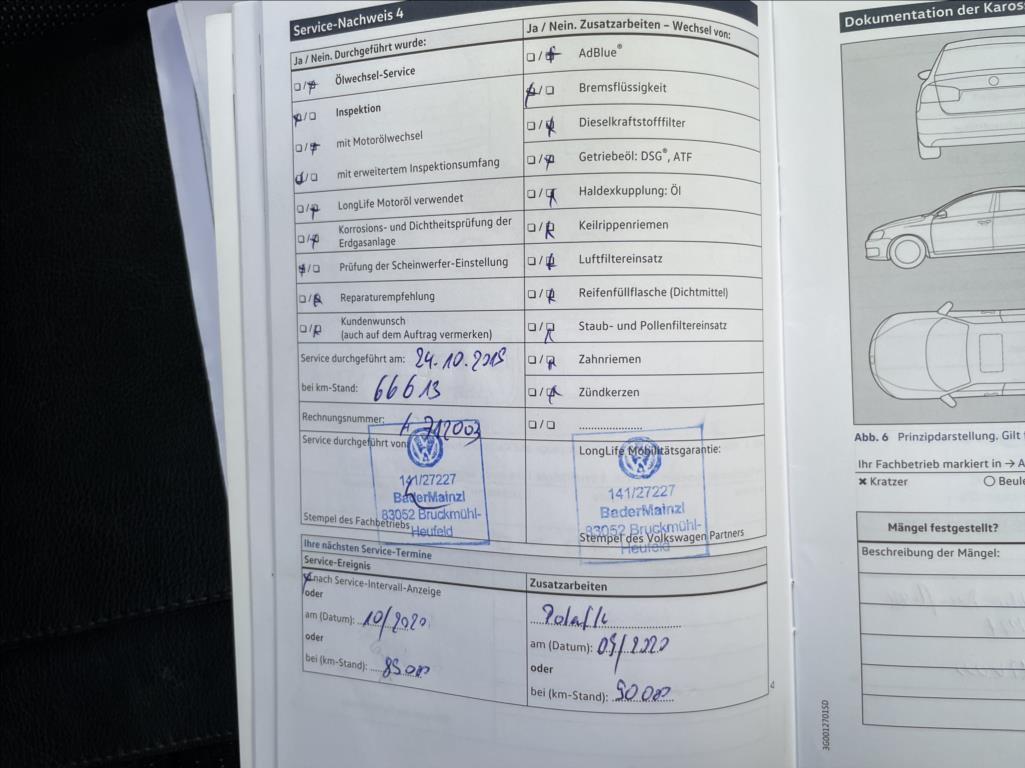 Service-Nachweis 4
Ja / Nein. Durchgeführt wurde:
Ölwechsel-Service
Inspektion
mit Motorölwechsel
mit erweitertem Inspektionsumfang
LongLife Motoröl verwendet
Korrosions- und Dichtheitsprüfung der
Erdgasanlage
Prüfung der Scheinwerfer-Einstellung
Reparaturempfehlung
Kundenwunsch
(auch auf dem Auftrag vermerken)
Service durchgeführt am: 24.10.2019
bei km-Stand: 66613
Rechnungsnummer: 712003
Service durchgeführt von
141/27227
BaderMainzl
83052 Bruckmühl-
Heufeld
Stempel des Fachbetriebs
Ja / Nein. Zusatzarbeiten – Wechsel von:
AdBlue®
Bremsflüssigkeit
Dieselkraftstofffilter
Getriebeöl: DSG®, ATF
Haldexkupplung: Öl
Keilrippenriemen
Luftfiltereinsatz
Reifenfüllflasche (Dichtmittel)
Staub- und Pollenfiltereinsatz
Zahnriemen
Zündkerzen
LongLife Mobilitätsgarantie:
141/27227
BaderMainzl
83052 Bruckmühl-
Heufeld
Stempel des Volkswagen Partners
Ihre nächsten Service-Termine
Service-Ereignis
nach Service-Intervall-Anzeige
oder
am (Datum): 10/2020
oder
bei (km-Stand):
Zusatzarbeiten
am (Datum): 09/2020
oder
bei (km-Stand): 90000
4
Dokumentation der Kaross
Abb. 6 Prinzipdarstellung. Gilt
Ihr Fachbetrieb markiert in → A
✖ Kratzer
○ Beule
Mängel festgestellt?
Beschreibung der Mängel:
3G0012701SD